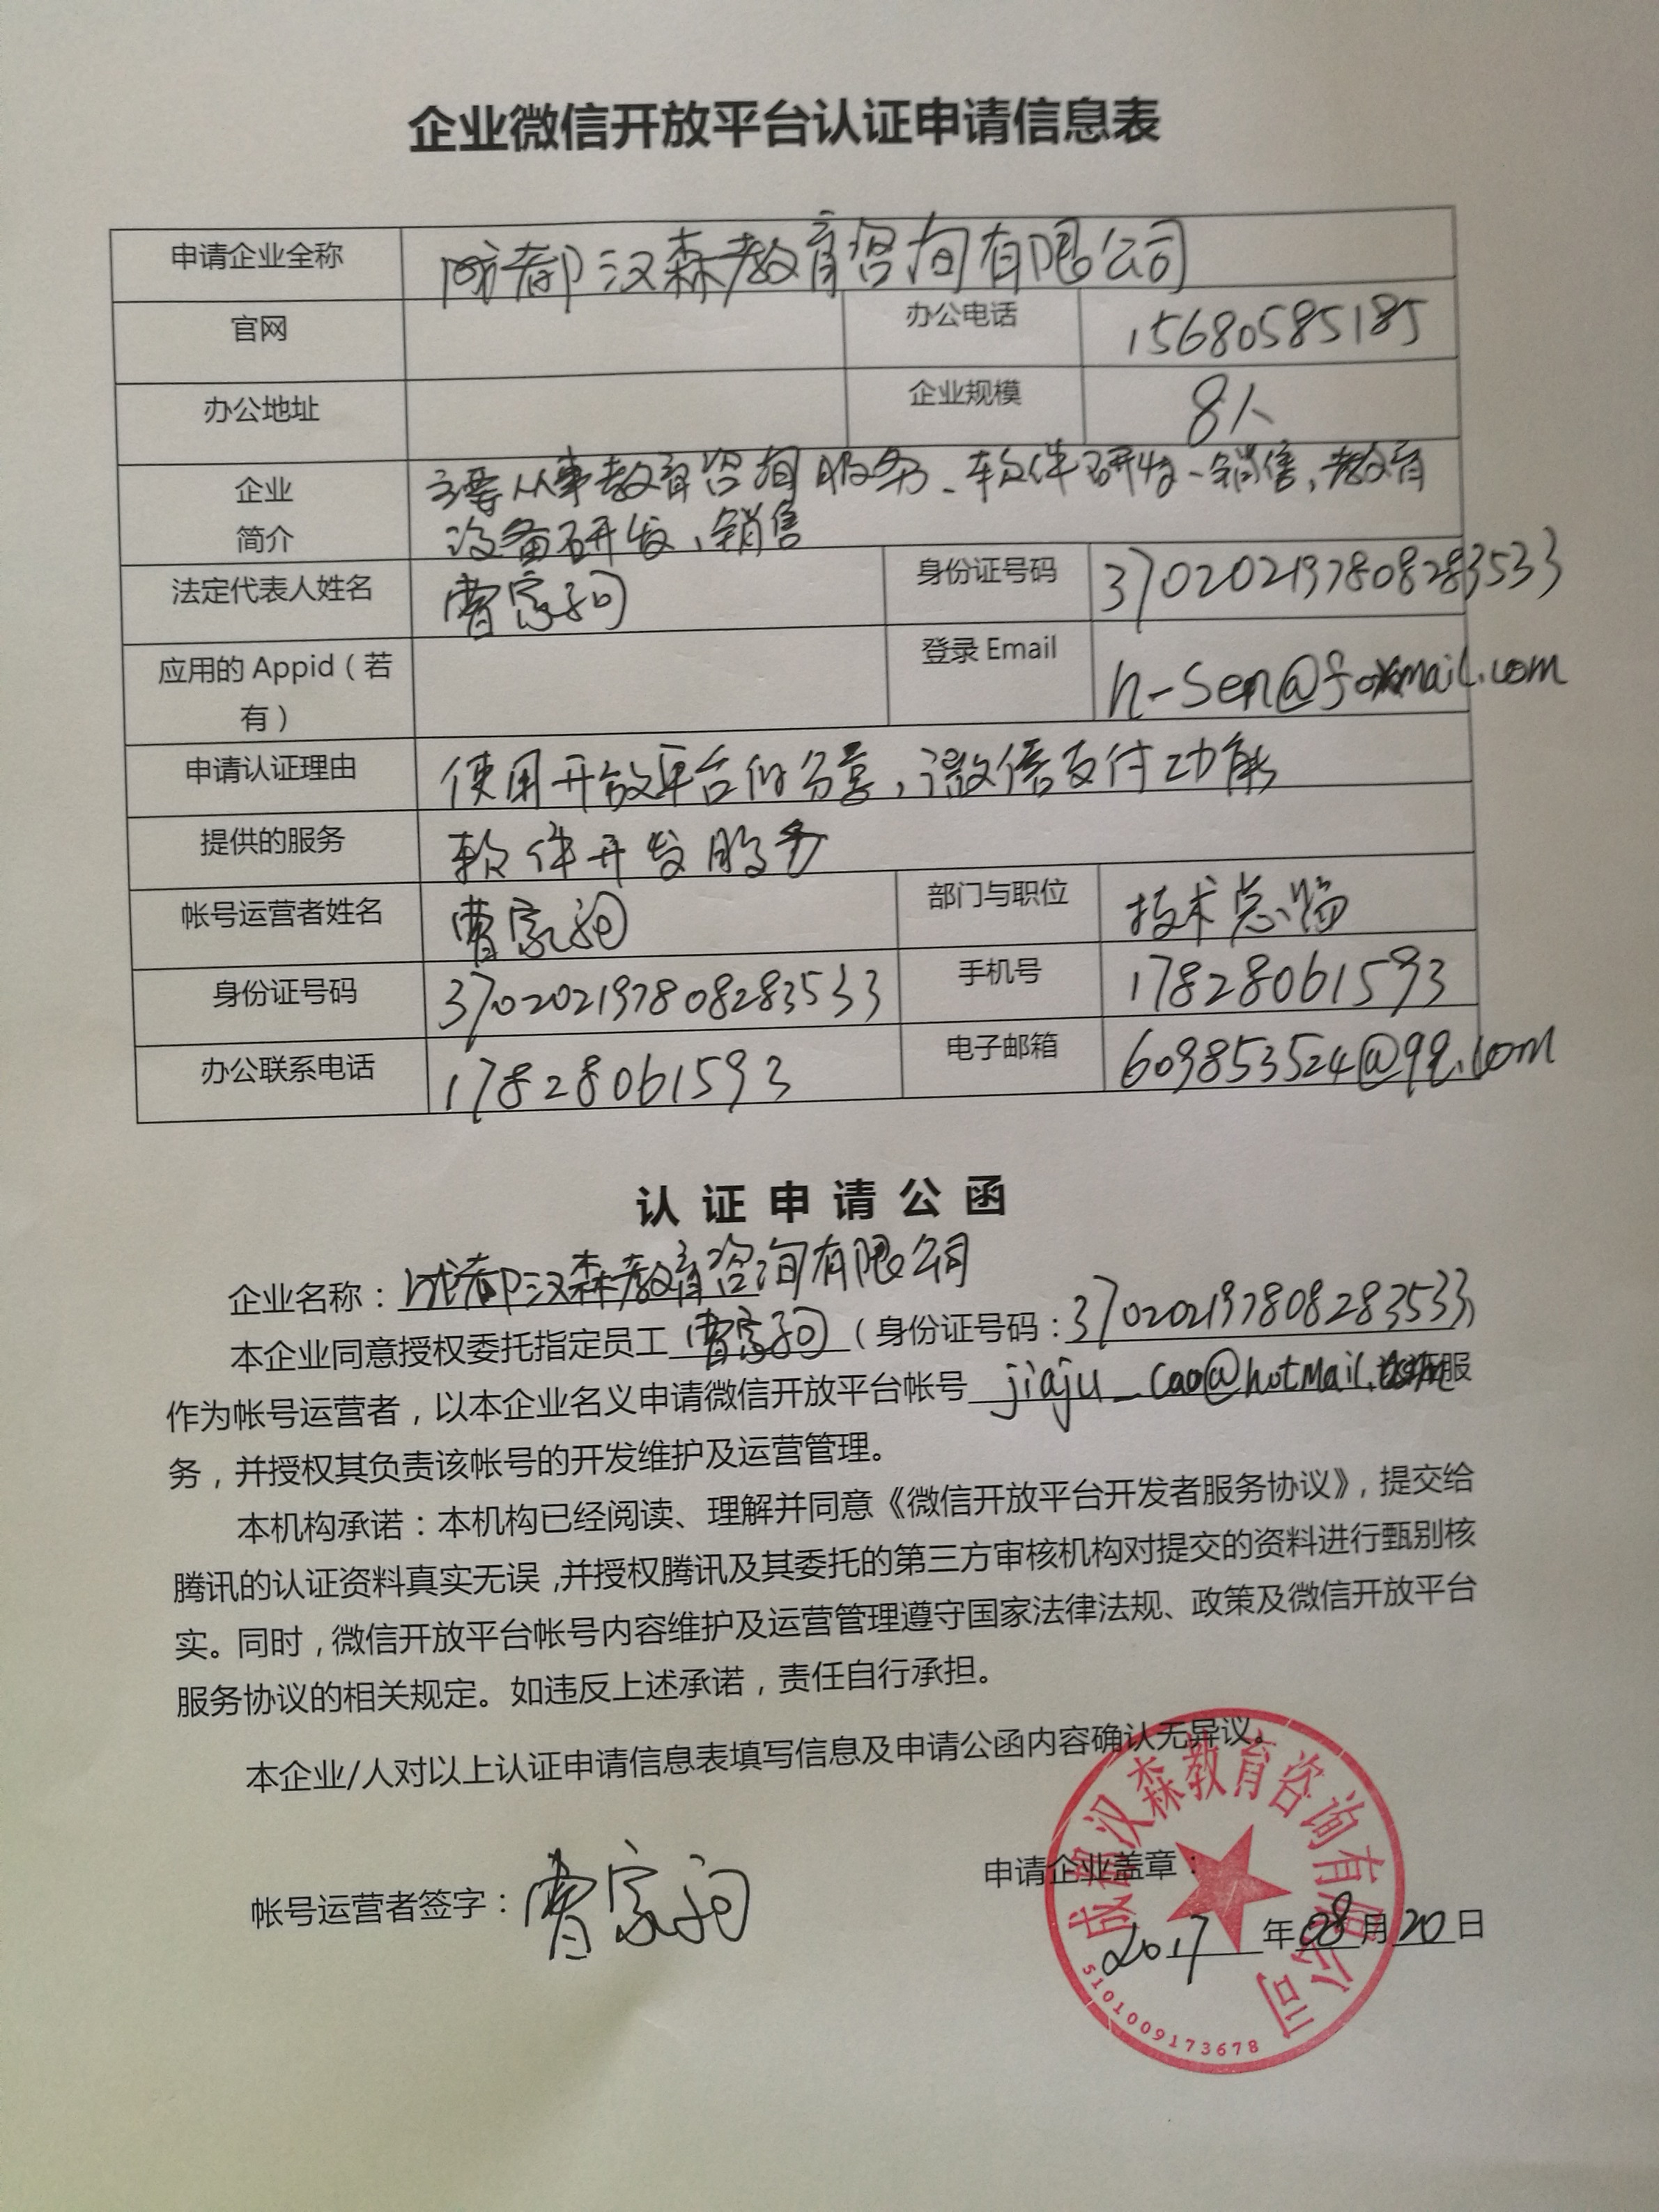 企业微信开放平台认证申请信息表
申请企业全称 成都汉森教育咨询有限公司
官网 办公电话 15680585185
办公地址 企业规模 8人
企业简介 主要从事教育咨询服务、软件研发、销售,教育
设备研发、销售
法定代表人姓名 曹家 身份证号码 370202197808283533
应用的 Appid(若有) 登录 Email h-sen@foxmail.com
申请认证理由 使用开放平台的分享,微信支付功能
提供的服务 软件开发服务
帐号运营者姓名 曹家 部门与职位 技术总监
身份证号码 370202197808283533 手机号 17828061593
办公联系电话 17828061593 电子邮箱 609853524@qq.com
认证申请公函
企业名称:成都汉森教育咨询有限公司
本企业同意授权委托指定员工 曹家 (身份证号码:370202197808283533)
作为帐号运营者,以本企业名义申请微信开放平台帐号 jiaju_cao@hotmail.com 服
务,并授权其负责该帐号的开发维护及运营管理。
本机构承诺:本机构已经阅读、理解并同意《微信开放平台开发者服务协议》,提交给
腾讯的认证资料真实无误,并授权腾讯及其委托的第三方审核机构对提交的资料进行甄别核
实。同时,微信开放平台帐号内容维护及运营管理遵守国家法律法规、政策及微信开放平台
服务协议的相关规定。如违反上述承诺,责任自行承担。
本企业/人对以上认证申请信息表填写信息及申请公函内容确认无异议。
帐号运营者签字:曹家 申请企业盖章:
2017年08月20日
成都汉森教育咨询有限公司
5101009173678